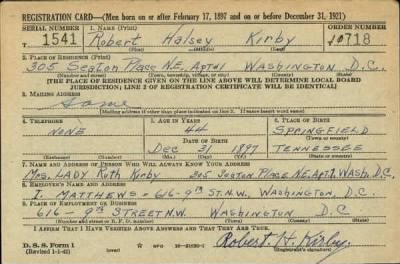 REGISTRATION CARD—(Men born on or after February 17, 1897 and on or before December 31, 1921)
SERIAL NUMBER 1. NAME (Print) ORDER NUMBER
T 1541 Robert Halsey Kirby 10718
(First) (Middle) (Last)
2. PLACE OF RESIDENCE (Print)
305 Seaton Place NE, Apt#1 WASHINGTON D.C.
(Number and street) (Town, township, village, or city) (County) (State)
[THE PLACE OF RESIDENCE GIVEN ON THE LINE ABOVE WILL DETERMINE LOCAL BOARD
JURISDICTION; LINE 2 OF REGISTRATION CERTIFICATE WILL BE IDENTICAL]
3. MAILING ADDRESS
Same
[Mailing address if other than place indicated on line 2. If same insert word same]
4. TELEPHONE 5. AGE IN YEARS 6. PLACE OF BIRTH
NONE 44 SPRINGFIELD
DATE OF BIRTH (Town or county)
Dec 31 1897 TENNESSEE
(Exchange) (Number) (Mo.) (Day) (Yr.) (State or country)
7. NAME AND ADDRESS OF PERSON WHO WILL ALWAYS KNOW YOUR ADDRESS
Mrs. LADY Ruth Kirby 305 SEATON PLACE NE. Apt.1 WASH. D.C.
8. EMPLOYER'S NAME AND ADDRESS
I. MATTHEWS - 616-9th ST. N.W., WASHINGTON, D.C.
9. PLACE OF EMPLOYMENT OR BUSINESS
616- 9th STREET N.W. WASHINGTON D.C
(Number and street or R. F. D. number) (Town) (County) (State)
I AFFIRM THAT I HAVE VERIFIED ABOVE ANSWERS AND THAT THEY ARE TRUE.
D. S. S. Form 1
(Revised 1-1-42) GPO 16-21630-1
Robert H. Kirby
(Registrant's signature)